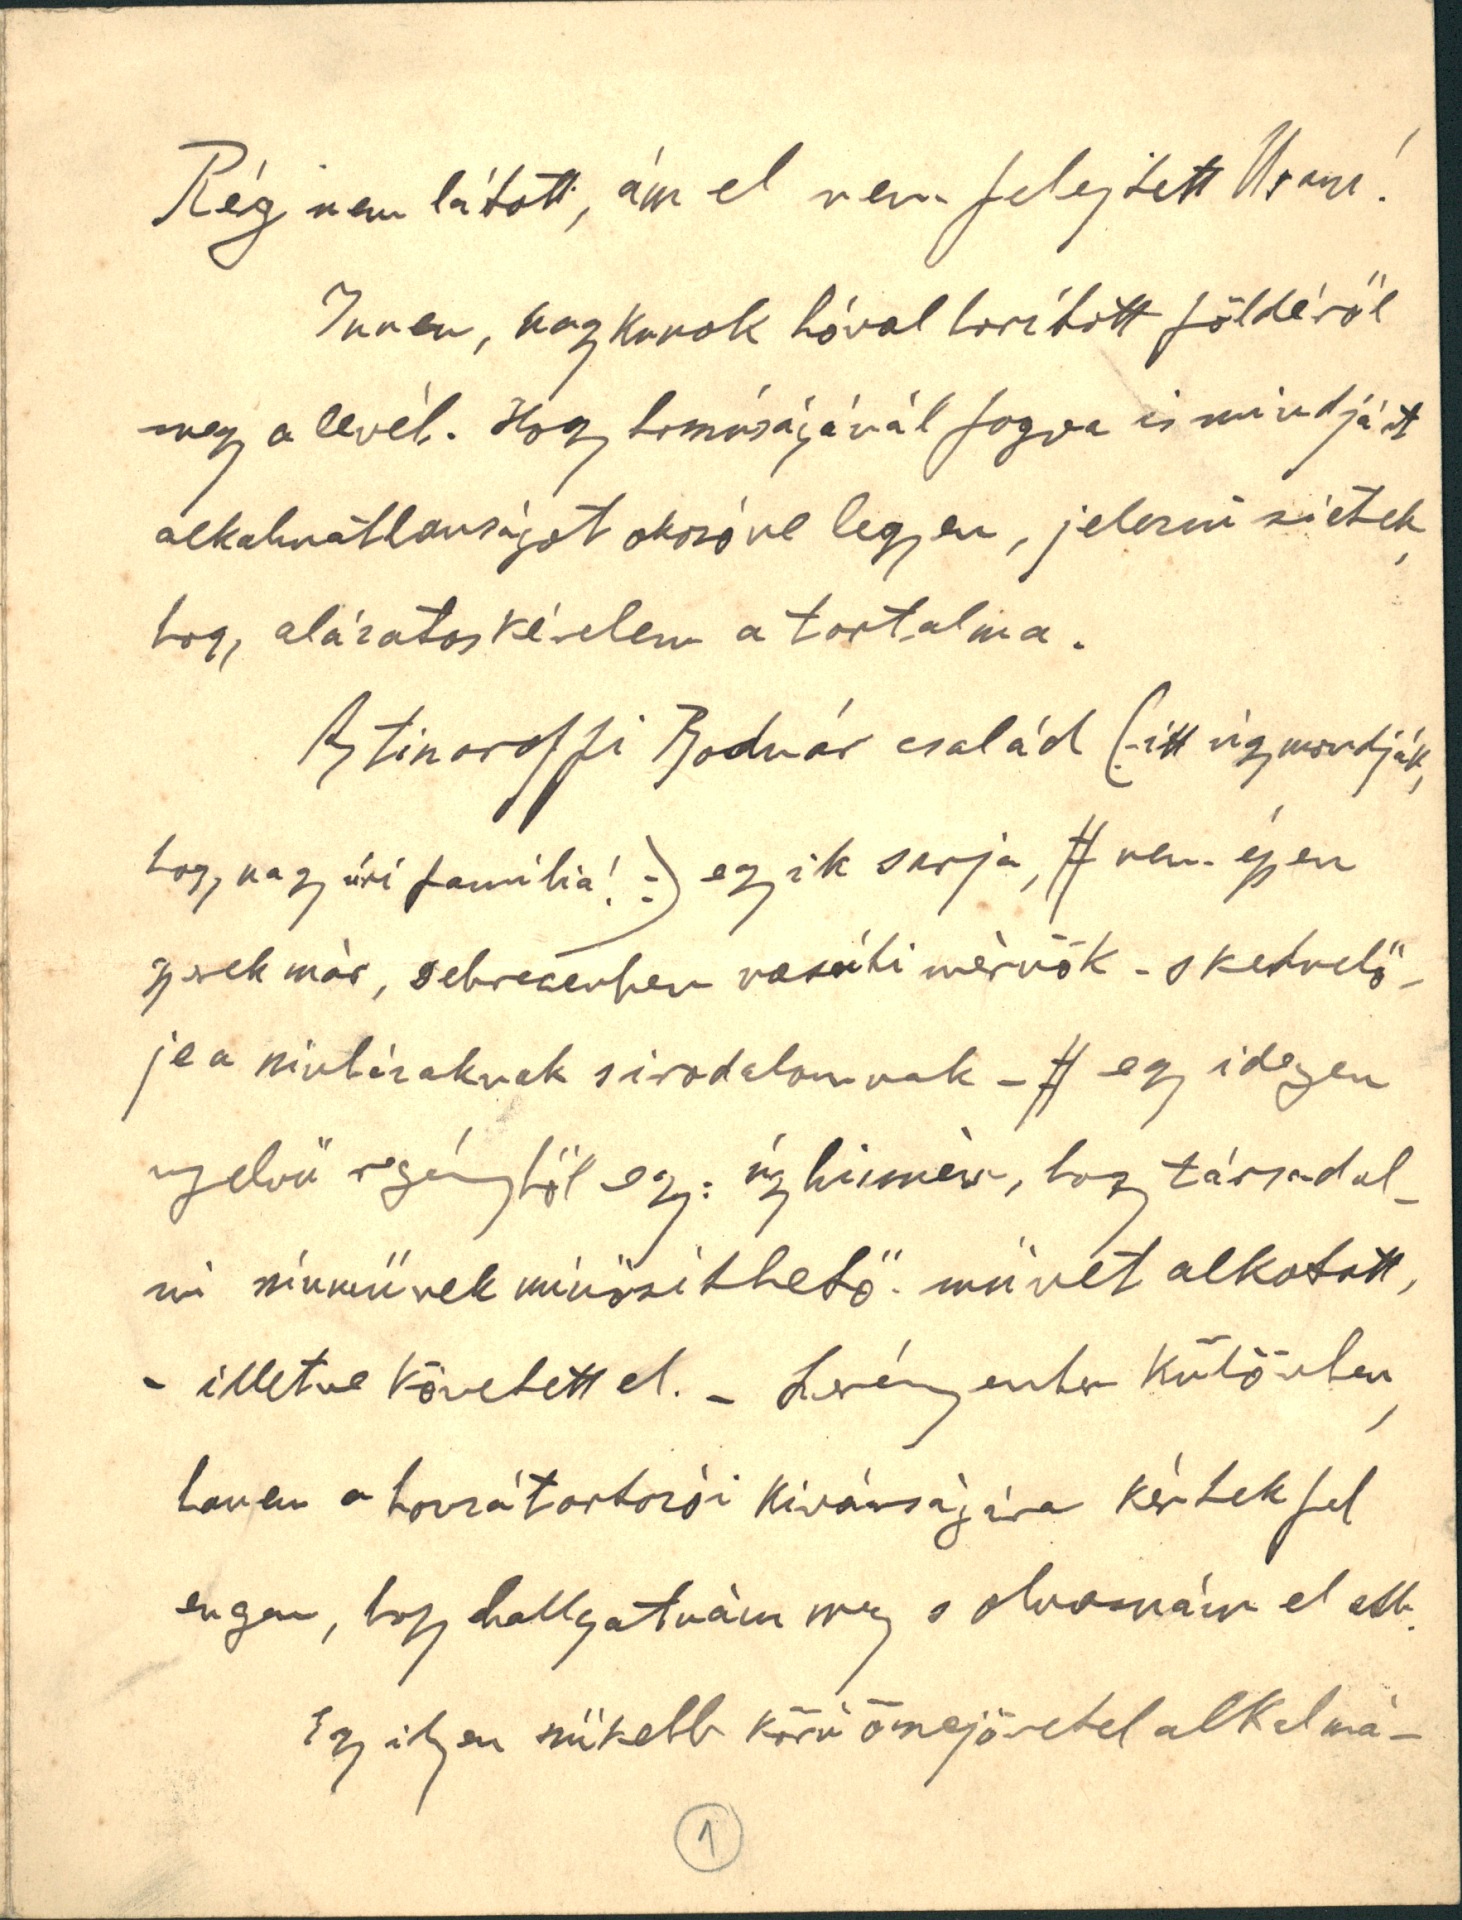 Rég nem látott, ám el nem felejtett Uram!
Innen, nagykunok hóval borított földéről
megy a levél. Hogy hosszúságánál fogva is mindjárt
alkalmatlanságot okozóvá legyen, jelezni sietek,
hogy alázatos kérelem a tartalma.
A tinoroffi Bodnár család (:-itt úgy mondják,
hogy nagy úri família! :) egyik sarja, # nem épen
gyerek már, Debrecenben vasúti mérnök - s kedvelő-
je a színházaknak s irodalomnak - # egy idegen
nyelvű regényből egy: úgy hiszem, hogy társadal-
mi színműnek minősíthető művet alkotott,
- illetve követett el. - Szerényember különben,
hanem a hozzátartozói kívánságára kértek fel
engem, hogy hallgatnám meg s olvasnám el azt.
Egy ilyen szűkebb körű összejövetel alkalmá-
1